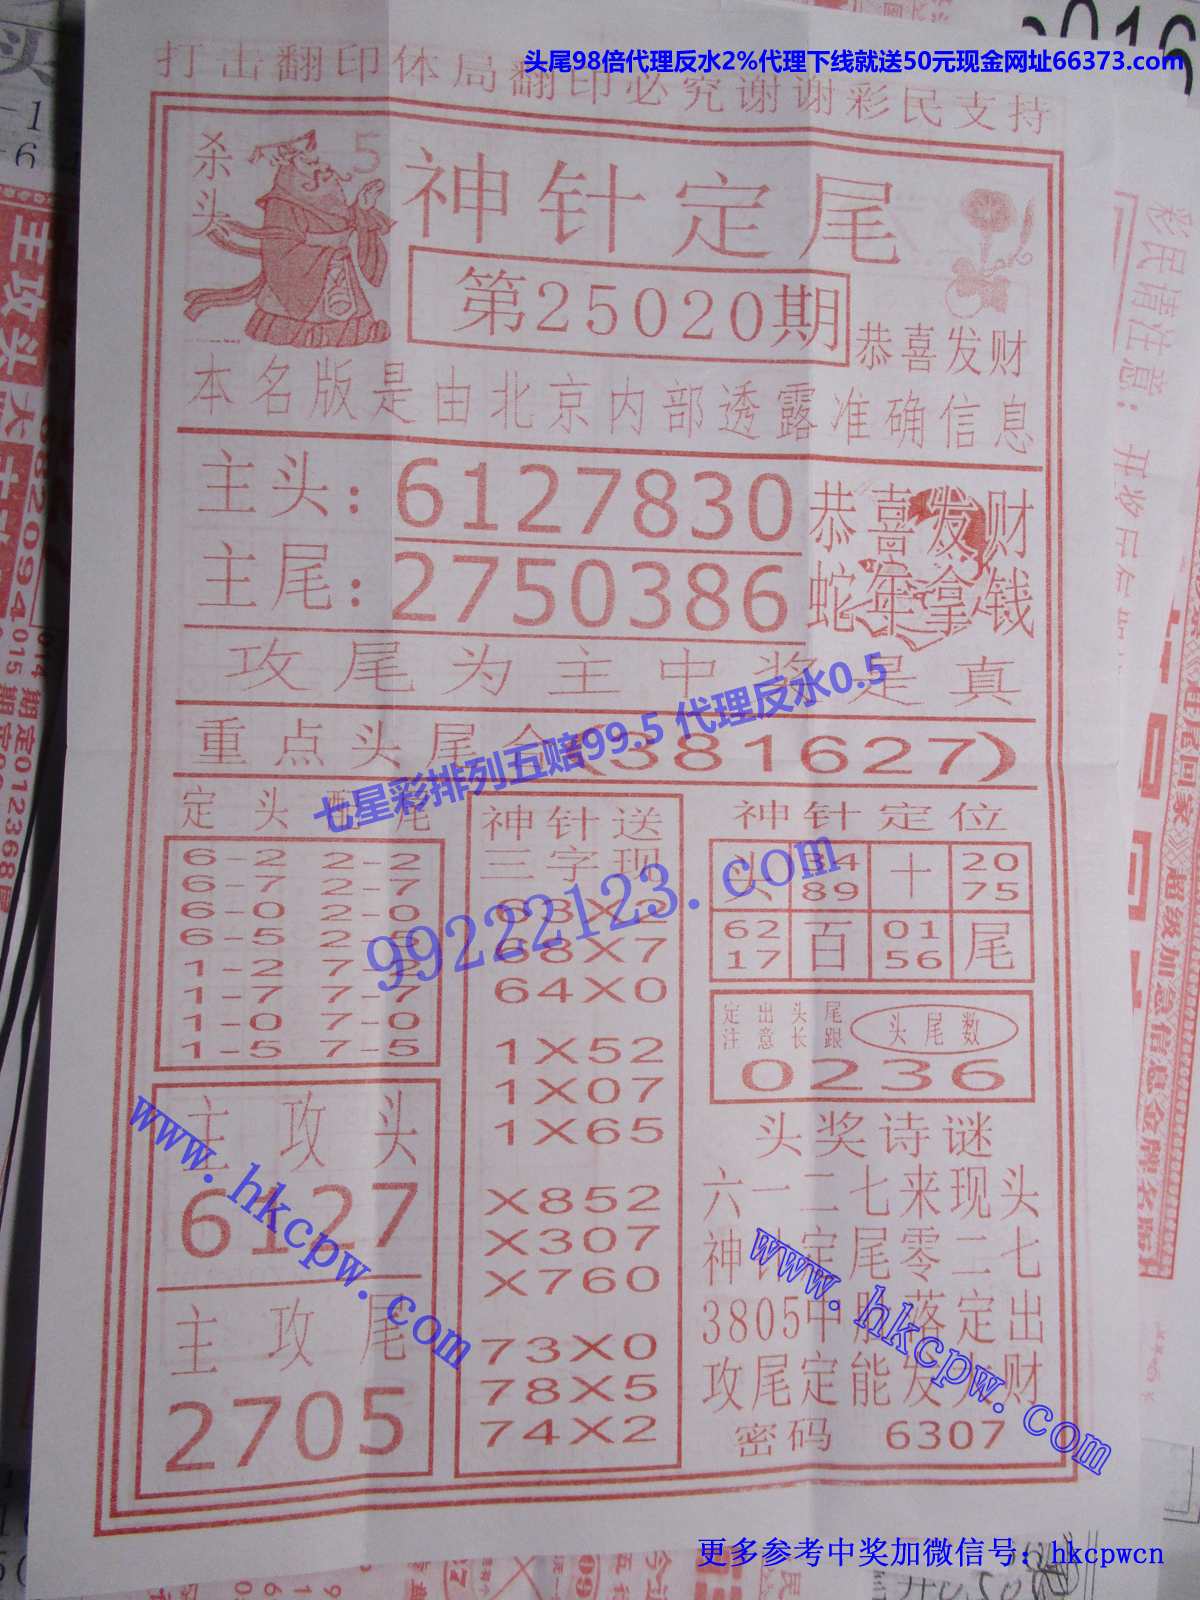 头尾98倍代理反水2%代理下线就送50元现金网址66373.com
打击翻印体局翻印必究谢谢彩民支持
杀头
5
神针定尾
第25020期
恭喜发财
本名版是由北京内部透露准确信息
主头：6127830
主尾：2750386
恭喜发财
蛇年拿钱
攻尾为主中奖是真
重点头尾合(381627)
七星彩排列五赔99.5 代理反水0.5
99222123.com
定头配尾
6-2 2-2
6-7 2-7
6-0 2-0
6-5 2-5
1-2 7-2
1-7 7-7
1-0 7-0
1-5 7-5
主攻头
6127
主攻尾
2705
神针送
三字现
63X2
68X7
64X0
1X52
1X07
1X65
X852
X307
X760
73X0
78X5
74X2
神针定位
头 34 十 20
89 75
62 百 01 尾
17 56
定出头尾
注意长跟
头尾数
0236
头奖诗谜
六一二七来现头
神针定尾零二七
3805中胆落定出
攻尾定能发大财
密码 6307
www.hkcpw.com
www.hkcpw.com
更多参考中奖加微信号：hkcpwcn
彩民请注意：
主攻头